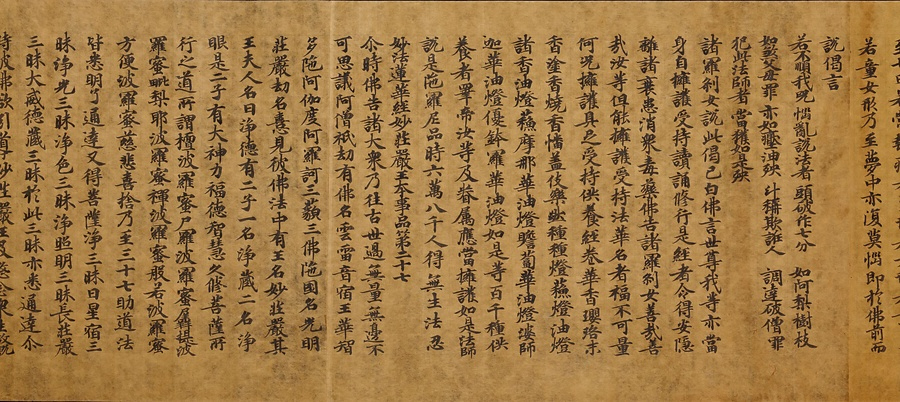 若童女形乃至夢中亦復莫惱即於佛前而
說偈言
若不順我呪 惱亂說法者 頭破作七分 如阿梨樹枝
如殺父母罪 亦如壓油殃 斗秤欺誑人 調達破僧罪
犯此法師者 當獲如是殃
諸羅剎女說此偈已白佛言世尊我等亦當
身自擁護受持讀誦修行是經者令得安隱
離諸衰患消衆毒藥佛告諸羅剎女善哉善
哉汝等但能擁護受持法華名者福不可量
何況擁護具足受持供養經卷華香瓔珞末
香塗香燒香幡蓋伎樂燃種種燈蘇燈油燈
諸香油燈蘇摩那華油燈瞻蔔華油燈婆師
迦華油燈優鉢羅華油燈如是等百千種供
養者睪帝汝等及眷屬應當擁護如是法師
說是陁羅尼品時六萬八千人得無生法忍
妙法蓮華經妙莊嚴王本事品第二十七
尒時佛告諸大衆乃往古世過無量無邊不
可思議阿僧祇劫有佛名雲雷音宿王華智
多陁阿伽度阿羅訶三藐三佛陁國名光明
莊嚴劫名憙見彼佛法中有王名妙莊嚴其
王夫人名曰淨德有二子一名淨藏二名淨
眼是二子有大神力福德智慧久修菩薩所
行之道所謂檀波羅蜜尸羅波羅蜜羼提波
羅蜜毗梨耶波羅蜜禪波羅蜜般若波羅蜜
方便波羅蜜慈悲喜捨乃至三十七助道法
皆悉明了通達又得菩薩淨三昧日星宿三
昧淨光三昧淨色三昧淨照明三昧長莊嚴
三昧大威德藏三昧於此三昧亦悉通達尒
時彼佛欲引導妙莊嚴王及愍念衆生故說